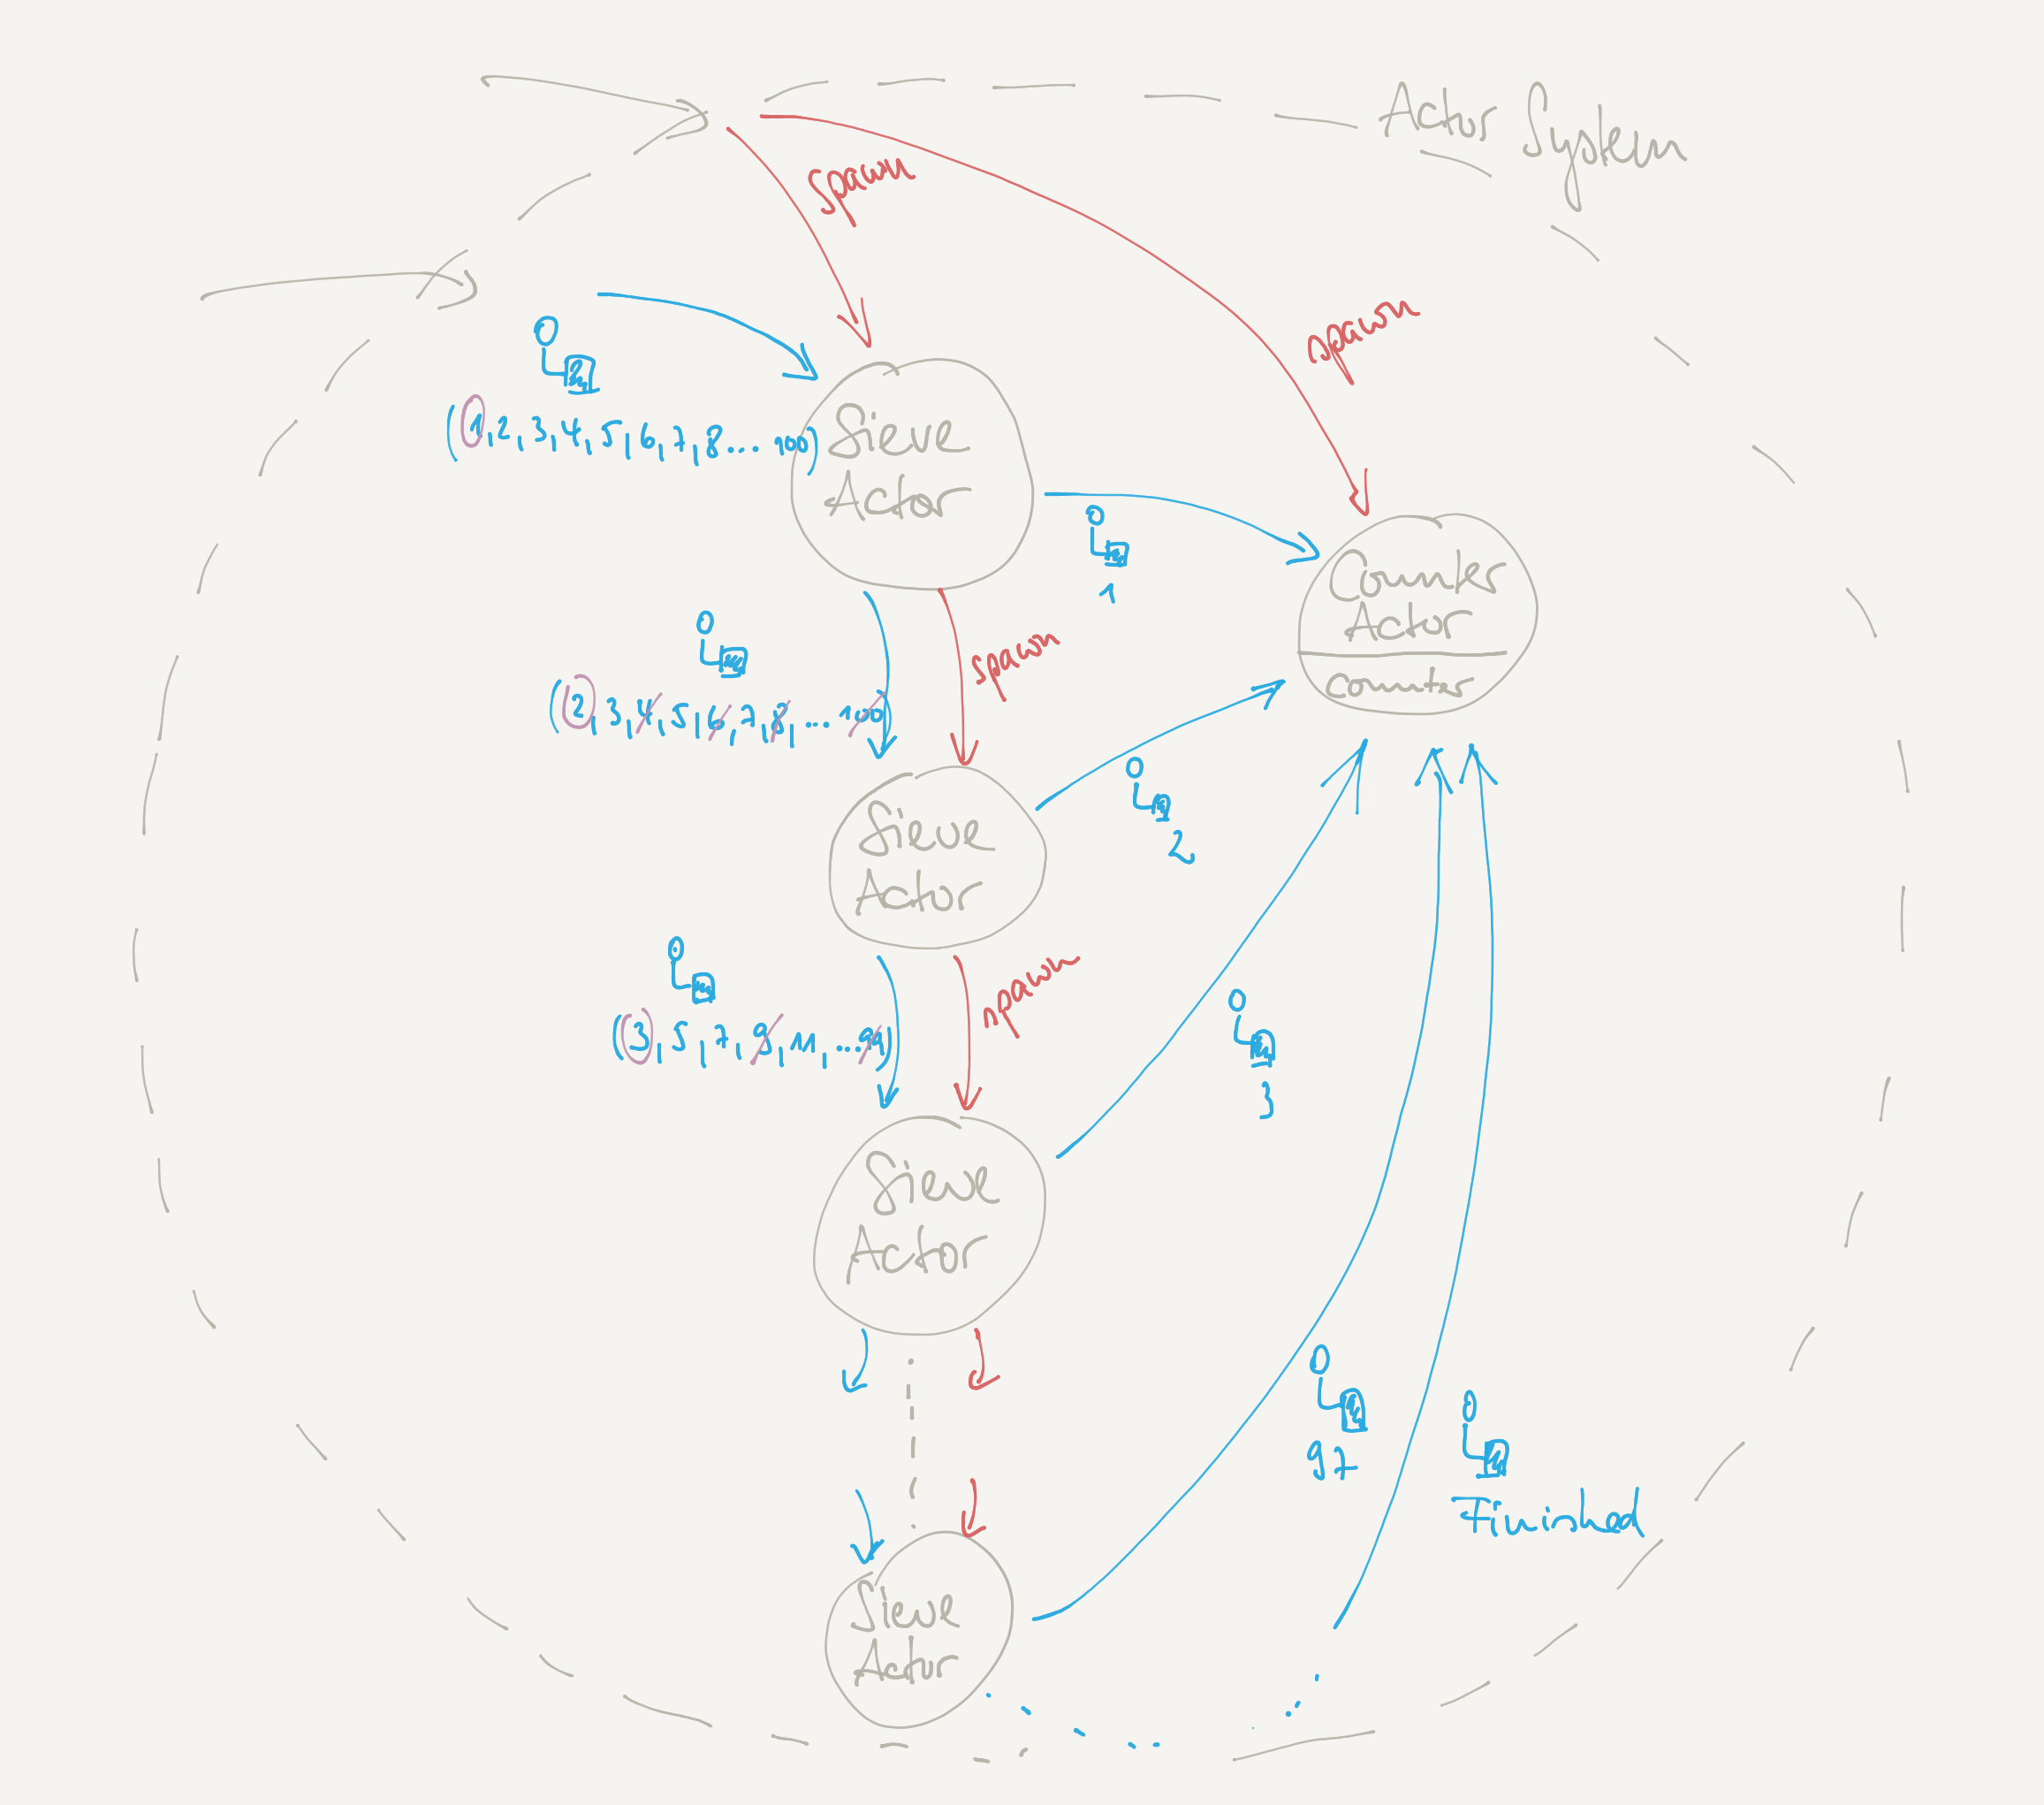 Actor System
spawn
spawn
(1,2,3,4,5,6,7,8...100)
Sieve
Actor
1
Counter
Actor
counter
spawn
(2,3,4,5,6,7,8,...100)
2
Sieve
Actor
spawn
(3,5,7,9,11,...99)
3
Sieve
Actor
97
Finished
Sieve
Actor